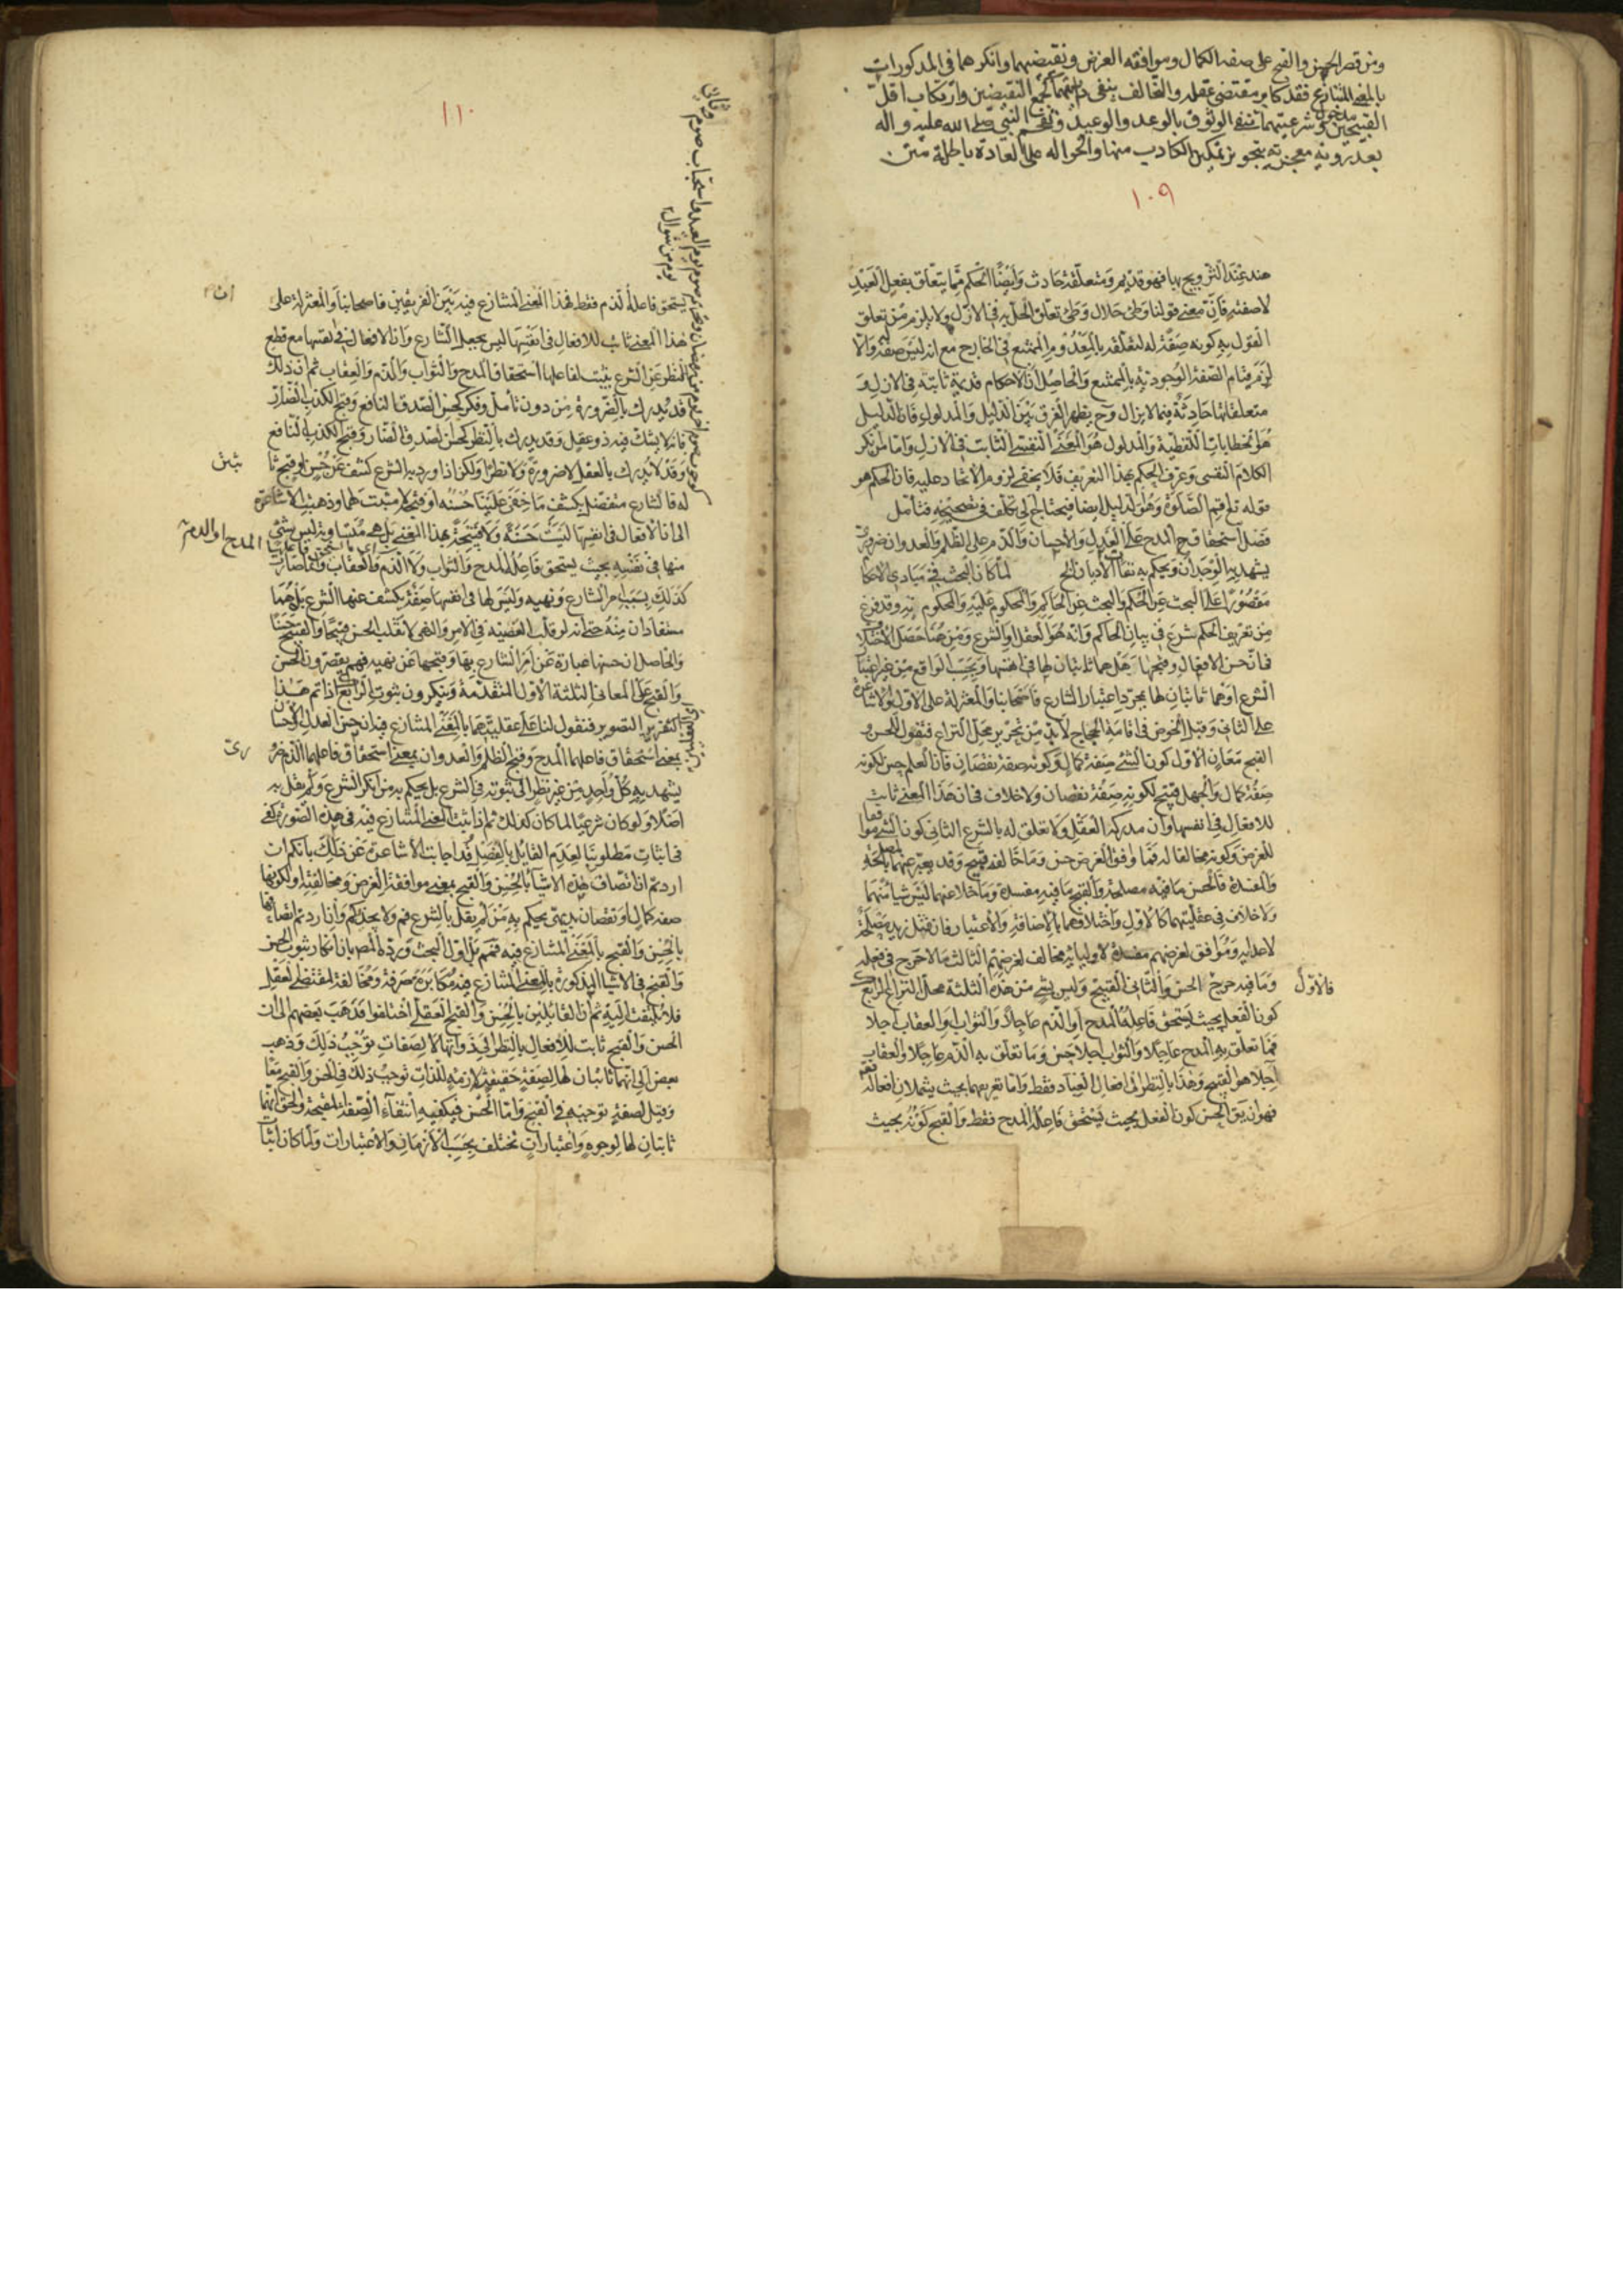 ومن قصر الحسن والقبح على صفة الكمال وموافقة الغرض ونقيضهما وانكرهما في المذكورات
بالمعنى المتنازع فقد كابر مقتضى عقله والتخالف ينفي ذاتيتهما كجمع النقيضين وارتكاب اقل
القبيحين مدخول وشرعيتهما تنفي الوثوق بالوعد والوعيد النبي صلى الله عليه واله
بعد رؤية معجزته بتجويز تمكين الكاذب منها والحوالة على العادة باطلة متن
١٠٩
هند عند التزويج بها فهو قديم ومتعلقه حادث وايضا الحكم مما يتعلق بفعل العبد
لا صفته فان معنى قولنا وطئ حلال وطئ تعلق الحل به في الازل ولا يلزم من تعلق
القول به كونه صفة له لتعلقه بالمعدوم الممتنع في الخارج مع انه ليس صفة والا
لزم قيام الصفة الوجودية بالممتنع والحاصل ان الاحكام قديمة ثابتة في الازل و
متعلقاتها حادثة فيما لا يزال وح يظهر الفرق بين الدليل والمدلول فان الدليل
هو الخطابات اللفظية والمدلول هو المعنى النفسي الثابت في الازل واما من انكر
الكلام النفسي وعرف الحكم بهذا التعريف فلا يخفى لزوم الاتحاد عليه فان الحكم هو
قوله تع اقم الصلوة وهو الدليل ايضا فيحتاج الى تكلف في تصحيحه فتامل
فصل استحقاق المدح على العدل والاحسان والذم على الظلم والعدوان ضروري
يشهد به الوجدان ويحكم به نفاة الاديان الخ لما كان البحث في مبادي الاحكا
مقصورا على البحث عن الحكم والبحث عن الحاكم والمحكوم عليه والمحكوم به وقد فرغ
من تعريف الحكم شرع في بيان الحاكم وانه هو العقل او الشرع ومن هنا حصل الاختلا
في ان حسن الافعال وقبحها هل هما ثابتان لها في انفسها وبحسب الواقع من غير اعتبا
الشرع او هما ثابتان لها بمجرد اعتبار الشارع فاصحابنا والمعتزلة على الاول والاشاعرة
على الثاني وقبل الخوض في اقامة الحجاج لا بد من تحرير محل النزاع فنقول للحسن و
القبح معان الاول كون الشئ صفة كمال وكونه صفة نقصان فان العلم حسن لكونه
صفة كمال والجهل قبيح لكونه صفة نقصان ولا خلاف في ان هذا المعنى ثابت
للافعال في انفسها وان مدركه العقل ولا تعلق له بالشرع الثاني كون الشئ موافقا
للغرض وكونه مخالفا له فما وافق الغرض حسن وما خالفه قبيح وقد يعبر عنهما بالمصلحة
والمفسدة فالحسن ما فيه مصلحة والقبح ما فيه مفسدة وما خلا عنهما ليس شيئا منهما
ولا خلاف في عقليتهما كالاول واختلافهما بالاضافة والاعتبار فان قتل زيد مصلحة
لاعدائه وموافق لغرضهم مفسدة لاوليائه مخالف لغرضهم الثالث ما لا حرج في فعله
وما فيه حرج فالاول الحسن والثاني القبيح وليس شئ من هذه الثلثة محل النزاع الرابع
كون الفعل بحيث يستحق فاعله المدح او الذم عاجلا والثواب او العقاب اجلا
فما تعلق به المدح عاجلا والثواب اجلا حسن وما تعلق به الذم عاجلا والعقاب
آجلا هو القبيح وهذا بالنظر الى افعال العباد فقط واما تعريفهما بحيث يشملان افعاله تعم
فهو ان يق الحسن كون الفعل بحيث يستحق فاعله المدح فقط والقبح كونه بحيث
١١٠
صوم يوم العيد واستحباب صوم
يوم من شوال
يستحق فاعله الذم فقط فهذا المعنى المتنازع فيه بين الفريقين فاصحابنا والمعتزلة على ان
هذا المعنى ثابت للافعال في انفسها ليس بجعل الشارع وان الافعال في نفسها مع قطع
النظر عن الشرع يثبت لفاعلها استحقاق المدح والثواب والذم والعقاب ثم ان ذلك
قد يدرك بالضرورة من دون تامل وفكر كحسن الصدق النافع وقبح الكذب الضار
فانه لا يشك فيه ذو عقل وقد يدرك بالنظر كحسن الصدق الضار وقبح الكذب النافع
وقد لا يدرك بالعقل لا ضرورة ولا نظرا ولكن اذا ورد به الشرع كشف عن حسن او قبح ثابتين
له فالشارع متفضل بكشف ما خفي علينا حسنه او قبحه لا مثبت لهما وذهبت الاشاعرة
الى ان الافعال في انفسها ليست حسنة ولا قبيحة بهذا المعنى بل هي متساوية ليس شئ
منها في نفسه بحيث يستحق فاعله المدح والثواب ولا الذم والعقاب وانما صارت
كذلك بسبب امر الشارع ونهيه وليس لها في انفسها صفة يكشف عنها الشرع بل هما
مستفادان منه حتى انه لو قلب القضية في الامر والنهي لانقلب الحسن قبيحا والقبيح حسنا
والحاصل ان حسنها عبارة عن امر الشارع بها وقبحها عن نهيه فهم يقصرون الحسن
والقبح على المعاني الثلثة الاول المتقدمة وينكرون ثبوت الرابع اذا تم هذا
التصوير فنقول لنا على عقليتهما بالمعنى المتنازع فيه ان حسن العدل والاحسان
بمعنى استحقاق فاعلهما المدح وقبح الظلم والعدوان بمعنى استحقاق فاعلهما الذم ضروري
يشهد به كل واحد من غير نظر الى ثبوته في الشرع بل يحكم به من انكر الشرع ولم يقل به
اصلا ولو كان شرعيا لما كان كذلك ثم اذا ثبت المعنى المتنازع فيه في هذه الصورة كفى
في اثبات مطلوبنا لعدم القائل بالفصل قد اجابت الاشاعرة عن ذلك بانكم ان
اردتم ان اتصاف هذه الاشيا بالحسن والقبح بمعنى موافقة الغرض ومخالفته او لكونها
صفة كمال او نقصان بديهي يحكم به من لم يقل بالشرع فهم ولا يجديكم وان اردتم اتصافها
بالحسن والقبح بالمعنى المتنازع فيه فمم بل اول البحث ورده المص بان انكار ثبوت الحسن
والقبح في الاشيا المذكورة بالمعنى المتنازع فيه مكابرة صرفة ومخالفة لمقتضى العقل
فلا يلتفت اليه ثم ان القائلين بالحسن والقبح العقلي اختلفوا فذهب بعضهم الى ان
الحسن والقبح ثابت للافعال بالنظر الى ذواتها لا لصفات توجب ذلك وذهب
بعض الى انهما ثابتان لها لصفة حقيقية لازمة للذات توجب ذلك في الحسن والقبح معا
وقيل لصفة توجبه في القبح واما الحسن فيكفيه انتفاء الصفة المقبحة والحق انهما
ثابتان لها لوجوه واعتبارات تختلف بحسب الازمان والاعتبارات ولما كان اثبات